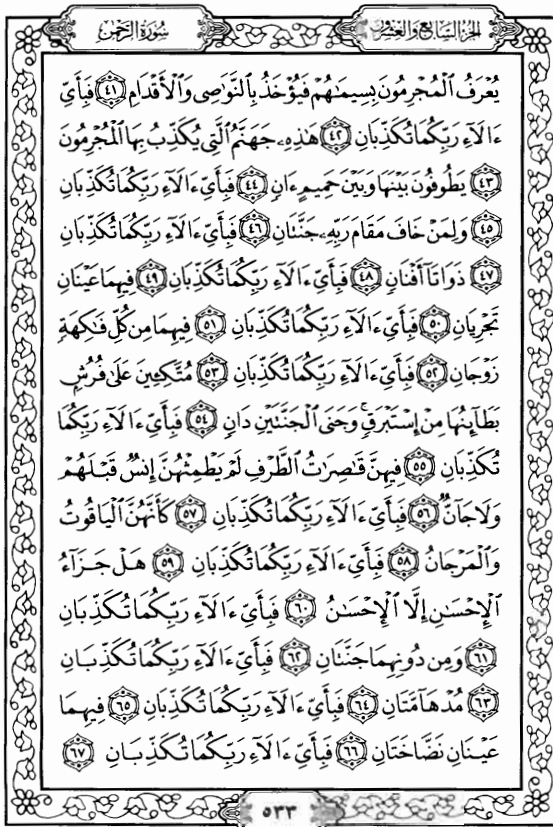 سُورَةُ الرَّحْمٰن
الجزء السابع والعشرون
يُعْرَفُ ٱلْمُجْرِمُونَ بِسِيمَٰهُمْ فَيُؤْخَذُ بِٱلنَّوَٰصِى وَٱلْأَقْدَامِ ٤١ فَبِأَىِّ
ءَالَآءِ رَبِّكُمَا تُكَذِّبَانِ ٤٢ هَٰذِهِۦ جَهَنَّمُ ٱلَّتِى يُكَذِّبُ بِهَا ٱلْمُجْرِمُونَ
٤٣ يَطُوفُونَ بَيْنَهَا وَبَيْنَ حَمِيمٍ ءَانٍ ٤٤ فَبِأَىِّ ءَالَآءِ رَبِّكُمَا تُكَذِّبَانِ
٤٥ وَلِمَنْ خَافَ مَقَامَ رَبِّهِۦ جَنَّتَانِ ٤٦ فَبِأَىِّ ءَالَآءِ رَبِّكُمَا تُكَذِّبَانِ
٤٧ ذَوَاتَآ أَفْنَانٍ ٤٨ فَبِأَىِّ ءَالَآءِ رَبِّكُمَا تُكَذِّبَانِ ٤٩ فِيهِمَا عَيْنَانِ
تَجْرِيَانِ ٥٠ فَبِأَىِّ ءَالَآءِ رَبِّكُمَا تُكَذِّبَانِ ٥١ فِيهِمَا مِن كُلِّ فَٰكِهَةٍ
زَوْجَانِ ٥٢ فَبِأَىِّ ءَالَآءِ رَبِّكُمَا تُكَذِّبَانِ ٥٣ مُتَّكِـِٔينَ عَلَىٰ فُرُشٍۭ
بَطَآئِنُهَا مِنْ إِسْتَبْرَقٍ ۚ وَجَنَى ٱلْجَنَّتَيْنِ دَانٍ ٥٤ فَبِأَىِّ ءَالَآءِ رَبِّكُمَا
تُكَذِّبَانِ ٥٥ فِيهِنَّ قَٰصِرَٰتُ ٱلطَّرْفِ لَمْ يَطْمِثْهُنَّ إِنسٌ قَبْلَهُمْ
وَلَا جَآنٌّ ٥٦ فَبِأَىِّ ءَالَآءِ رَبِّكُمَا تُكَذِّبَانِ ٥٧ كَأَنَّهُنَّ ٱلْيَاقُوتُ
وَٱلْمَرْجَانُ ٥٨ فَبِأَىِّ ءَالَآءِ رَبِّكُمَا تُكَذِّبَانِ ٥٩ هَلْ جَزَآءُ
ٱلْإِحْسَٰنِ إِلَّا ٱلْإِحْسَٰنُ ٦٠ فَبِأَىِّ ءَالَآءِ رَبِّكُمَا تُكَذِّبَانِ
٦١ وَمِن دُونِهِمَا جَنَّتَانِ ٦٢ فَبِأَىِّ ءَالَآءِ رَبِّكُمَا تُكَذِّبَانِ
٦٣ مُدْهَآمَّتَانِ ٦٤ فَبِأَىِّ ءَالَآءِ رَبِّكُمَا تُكَذِّبَانِ ٦٥ فِيهِمَا
عَيْنَانِ نَضَّاخَتَانِ ٦٦ فَبِأَىِّ ءَالَآءِ رَبِّكُمَا تُكَذِّبَانِ ٦٧
٥٣٣